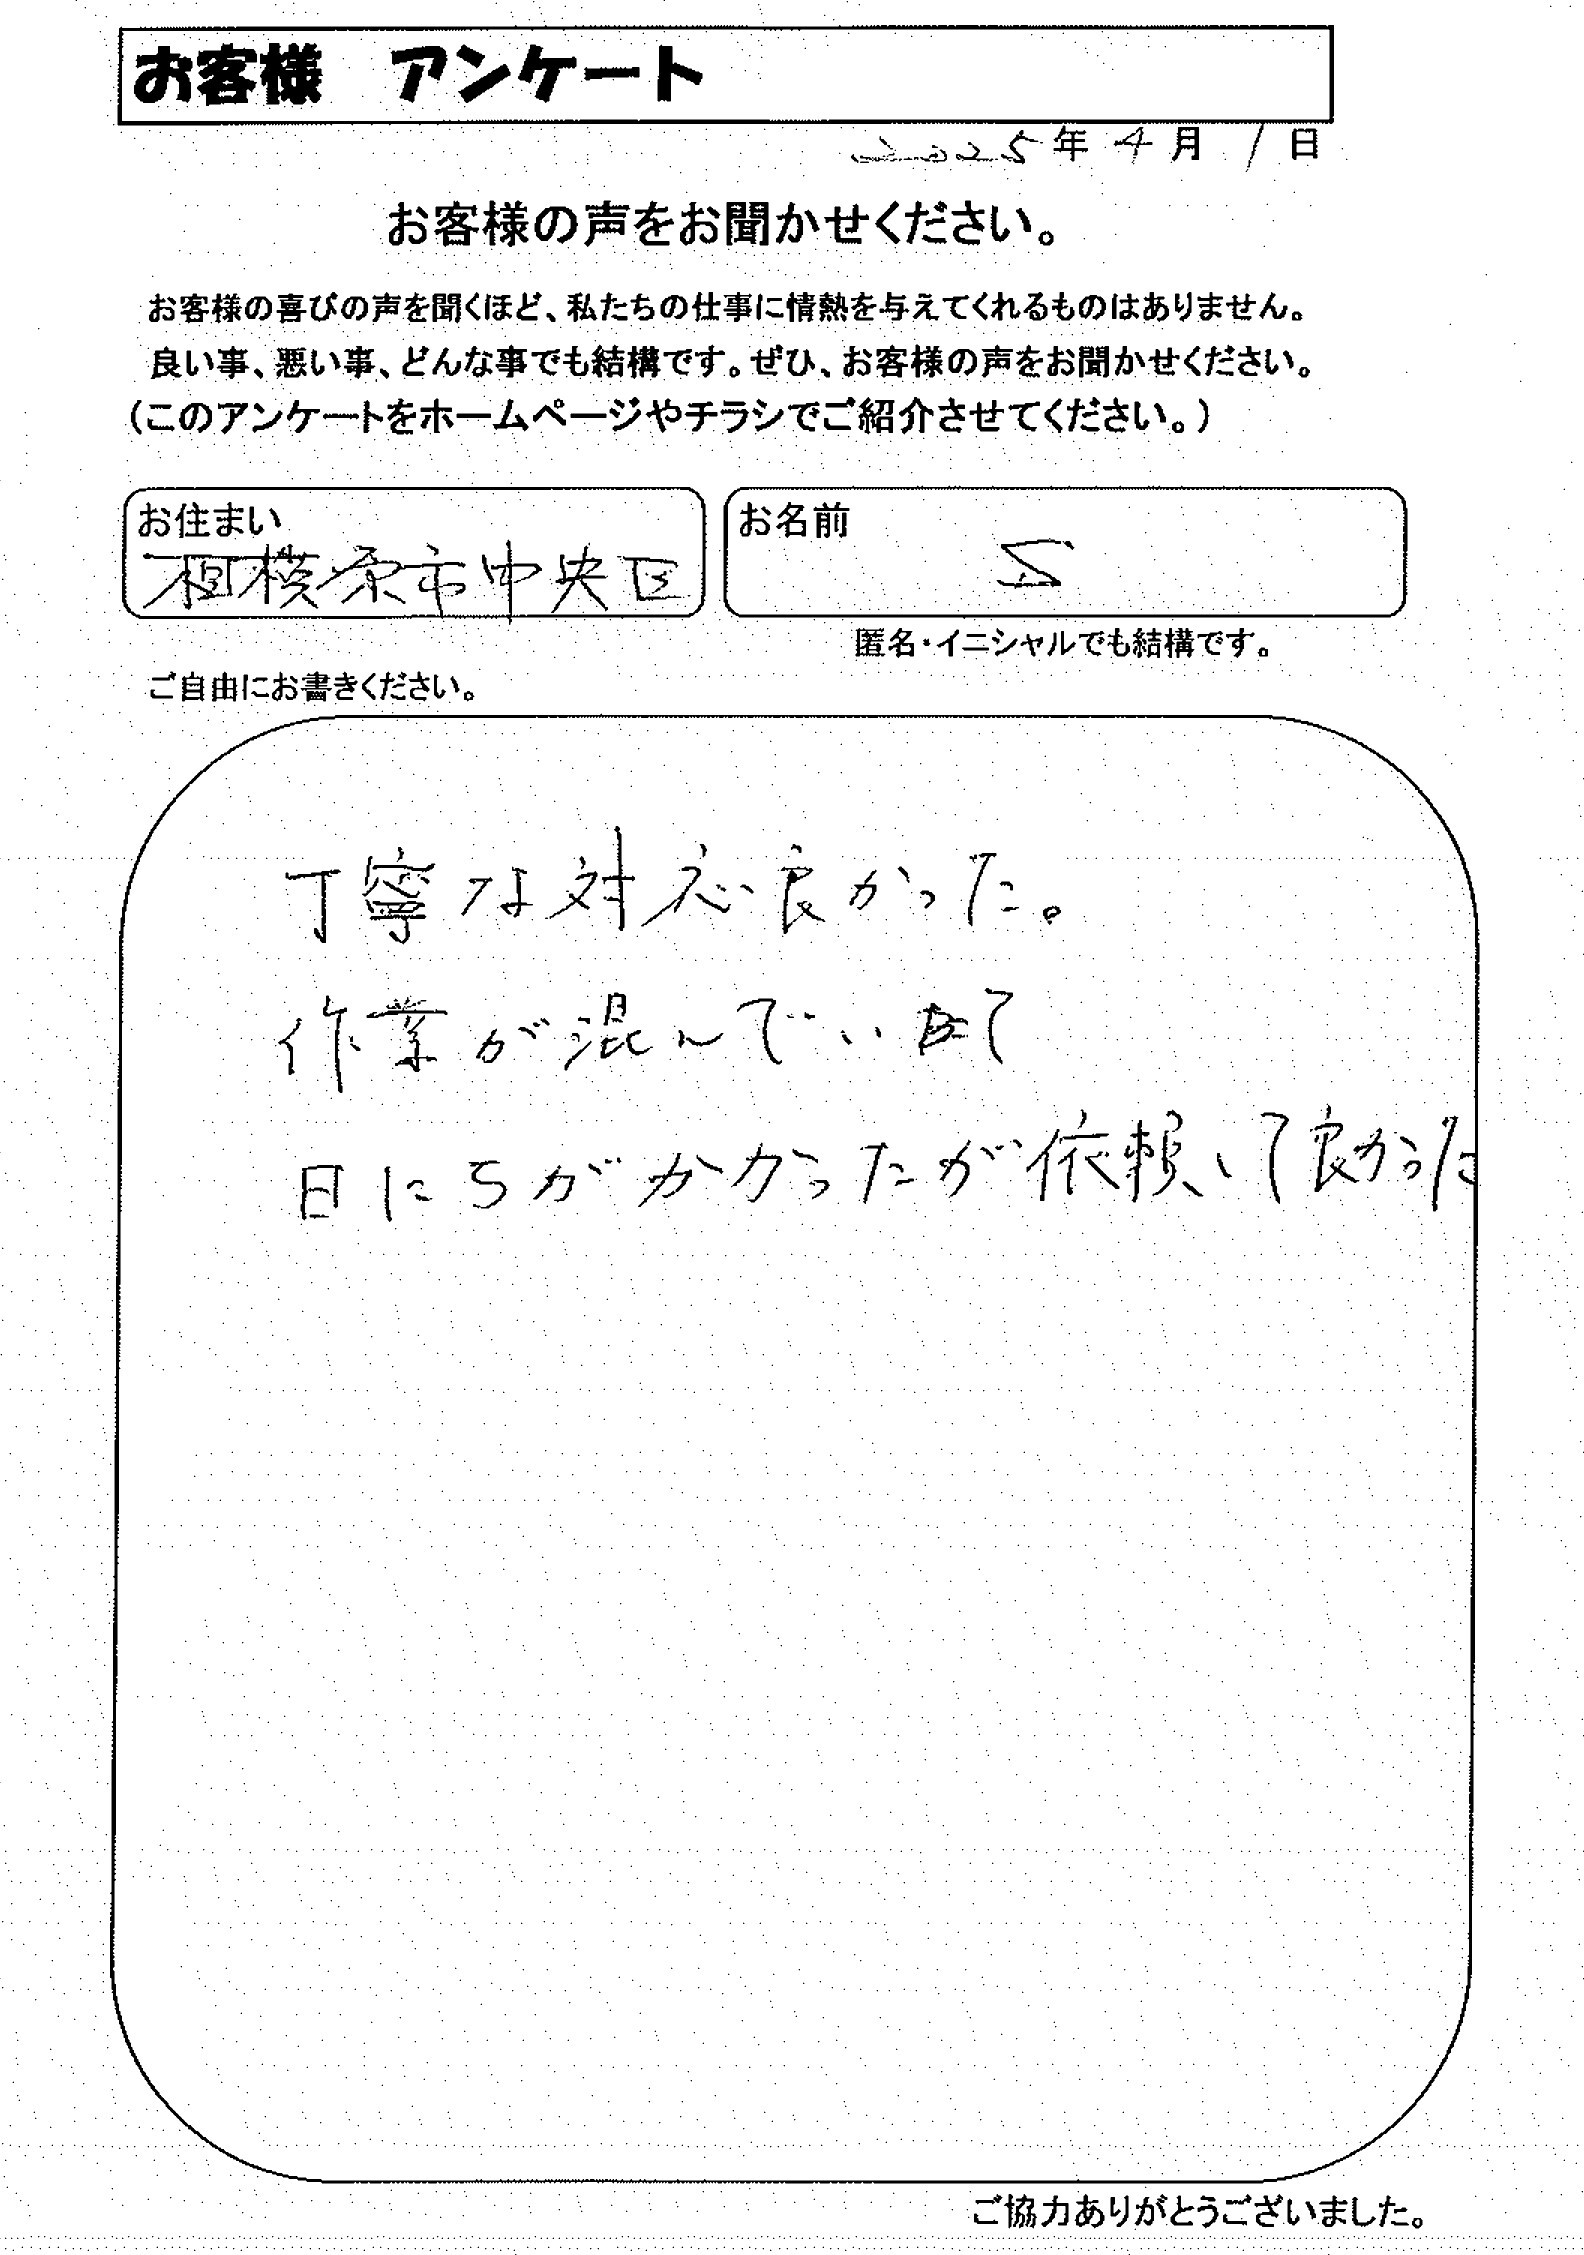 お客様 アンケート
2025年4月1日
お客様の声をお聞かせください。
お客様の喜びの声を聞くほど、私たちの仕事に情熱を与えてくれるものはありません。
良い事、悪い事、どんな事でも結構です。ぜひ、お客様の声をお聞かせください。
（このアンケートをホームページやチラシでご紹介させてください。）
お住まい
相模原市中央区
お名前
匿名・イニシャルでも結構です。
ご自由にお書きください。
丁寧な対応良かった。
作業が混んでい て
日にちがかかったが依頼して良かった
ご協力ありがとうございました。